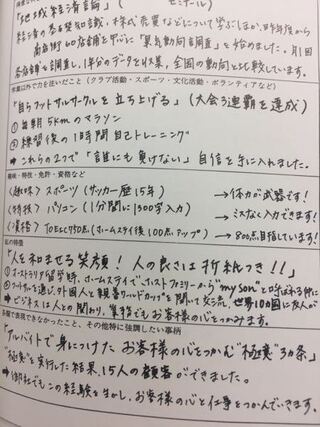 「地域経済音論」 ゼミナール
経済の基礎知識、株式売買などについて学ぶほか、昨年度から
商店街60店舗を中心に「景気動向調査」を始めました。月1回
各店舗を調査し、1年分のデータを収集、全国の動向と比較しています。
学業以外で力を注いだこと(クラブ活動・スポーツ・文化活動・ボランティアなど)
「自らフットサルサークルを立ち上げる」(大会3連覇を達成)
①毎朝5kmのマラソン
②練習後の1時間自己トレーニング
→これらの2つで「誰にも負けない」自信を手に入れました。
趣味・特技・免許・資格など
〈趣味〉スポーツ(サッカー歴15年) →体力が武器です!
〈特技〉パソコン(1分間に1300字入力) →ミスなく入力できます!
〈資格〉TOEIC590点(ホームステイ後100点アップ) →800点目指しています!
私の特徴
「人を和ませる笑顔! 人の良さは折紙つき!!」
①オーストラリア留学時、ホームステイでホストファミリーから"my son"と呼ばれる仲に
②フットサルを通じ、外国人と親善ワールドカップを開いて交流。世界100国に友人が
→ビジネスは人との関わり、業務でもお客様の心をつかみます。
多面で表現できなかったこと、その他特に強調したい事柄
「アルバイトで身につけた お客様の心をつかむ"極意"3カ条」
"極意"を実行した結果、15人の顧客ができました。
→御社でもこの経験を生かし、お客様の心と仕事をつかんでいきます。